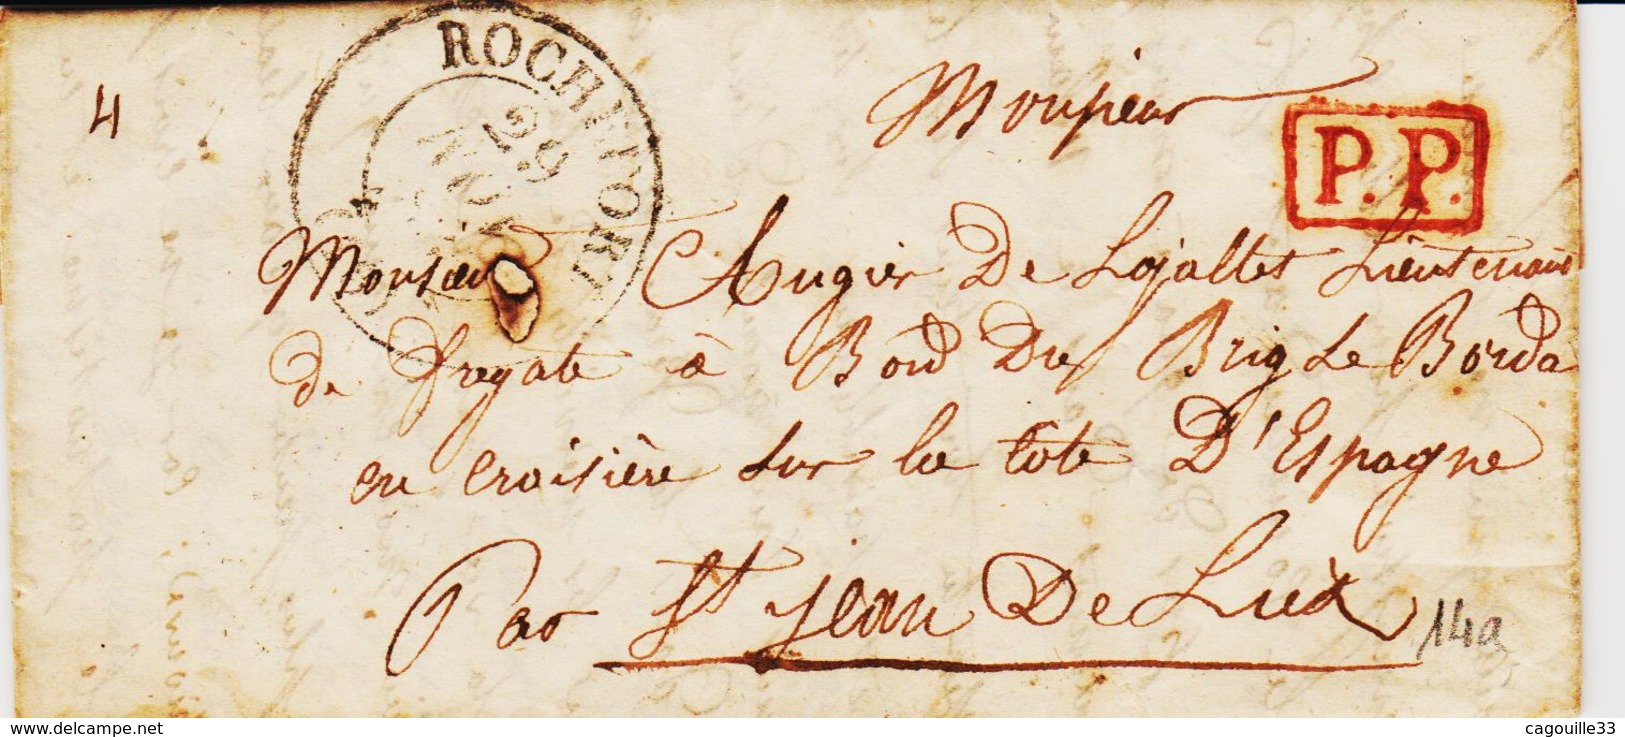 4
ROCHEFORT
29
NOV.
P.P.
Monsieur
Monsieur Augier De Lajallet Lieutenant
de fregate à Bord Du Brig Le Borda
en croisière sur la Cote D'Espagne
Par St jean De Luz
14a
cagouille33